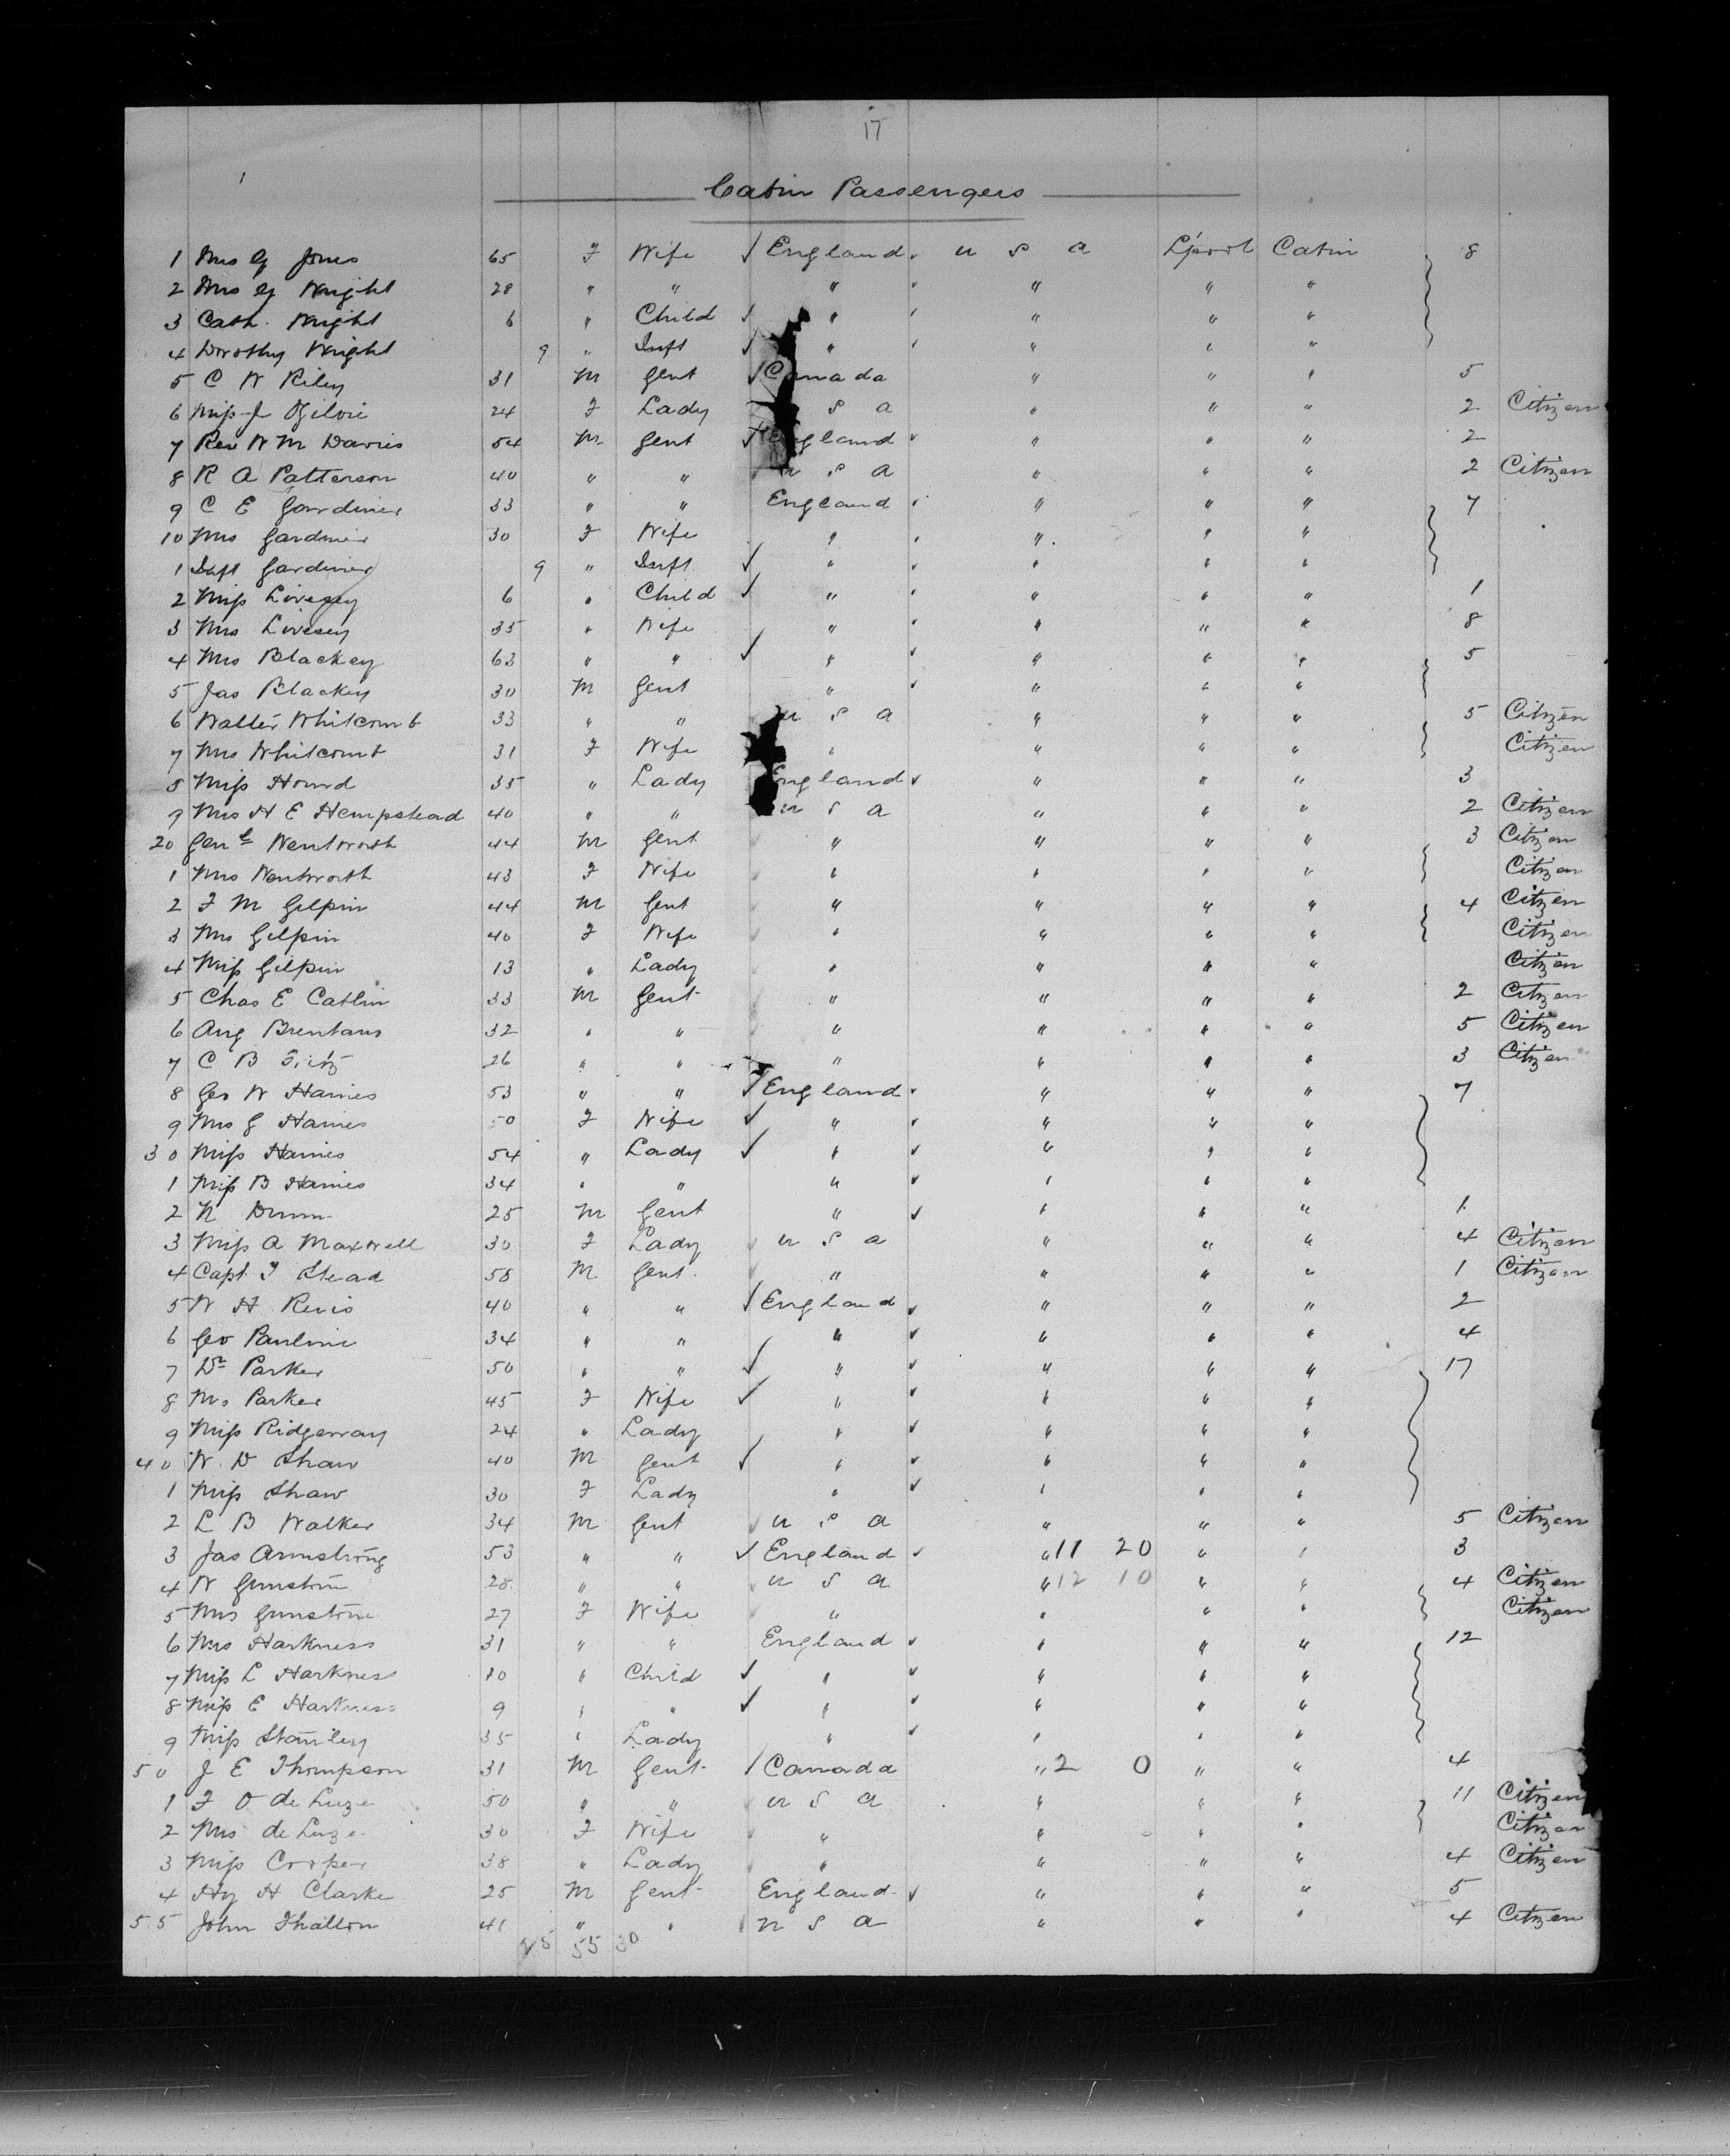 17
1
Cabin Passengers
1 Mrs G Jones 65 F Wife √ England √ U S A L'pool Cabin 8
2 Mrs G Wright 28 " " " " " " "
3 Cath. Wright 6 " Child √ " " " "
4 Dorothy Wright 9 " Inft √ " " " "
5 C W Riley 31 M Gent √ Canada " " " 5
6 Miss J Ogilvie 24 F Lady S A " " " 2 Citizen
7 Rev W M Davies 54 M Gent √ England √ " " " 2
8 R A Patterson 40 " " U S A " " " 2 Citizen
9 C E Gardiner 33 " " England √ " " " 7
10 Mrs Gardiner 30 F Wife " " " "
1 Inft Gardiner 9 " Inft. √ " " " "
2 Miss Livesey 6 " Child √ " " " " 1
3 Mrs Livesey 35 " Wife " " " " 8
4 Mrs Blackey 63 " " √ " √ " " " 5
5 Jas Blackey 30 M Gent " √ " " "
6 Walter Whitcomb 33 " " U S A " " " 5 Citizen
7 Mrs Whitcomb 31 F Wife " " " " Citizen
8 Miss Hound 35 " Lady England √ " " " 3
9 Mrs H E Hempstead 40 " " U S A " " " 2 Citizen
20 Genl Wentworth 44 M Gent " " " " 3 Citizen
1 Mrs Wentworth 43 F Wife " " " " Citizen
2 F M Gilpin 44 M Gent " " " " 4 Citizen
3 Mrs Gilpin 40 F Wife " " " " Citizen
4 Miss Gilpin 13 " Lady " " " " Citizen
5 Chas E Catlin 33 M Gent " " " " 2 Citizen
6 Aug Brentano 32 " " " " " " 5 Citizen
7 C B 26 " " " " " " 3 Citizen
8 Geo W Haines 53 " " √ England √ " " " 7
9 Mrs G Haines 50 F Wife √ " √ " " "
30 Miss Haines 54 " Lady √ " √ " " "
1 Miss B Haines 34 " " " √ " " "
2 N Dunn 25 M Gent " √ " " " 1
3 Miss A Maxwell 30 F Lady U S A " " " 4 Citizen
4 Capt. T Stead 58 M Gent. " " " " 1 Citizen
5 W H Revis 40 " " √ England √ " " " 2
6 Geo Pauline 34 " " " √ " " " 4
7 Dr Parker 50 " " √ " √ " " " 17
8 Mrs Parker 45 F Wife √ " √ " " "
9 Miss Ridgerway 24 " Lady " √ " " "
40 W. D Shaw 40 M Gent √ " √ " " "
1 Miss Shaw 30 F Lady " √ " " "
2 L B Walker 34 M Gent U S A " " " 5 Citizen
3 Jas Armstrong 53 " " √ England √ " 11 20 " " 3
4 W Gunstone 28 " " U S A " 12 10 " " 4 Citizen
5 Mrs Gunstone 27 F Wife " " " " Citizen
6 Mrs Harkness 31 " " England √ " " " 12
7 Miss L Harkness 10 " Child √ " √ " " "
8 Miss E Harkness 9 " " √ " √ " " "
9 Miss Stanley 35 " Lady " √ " " "
50 J E Thompson 31 M Gent √ Canada " 2 0 " " 4
1 F O de Luze 50 " " U S A " " " 11 Citizen
2 Mrs de Luze 30 F Wife " " " " Citizen
3 Miss Cooper 38 " Lady " " " " 4 Citizen
4 Hy H Clarke 25 M Gent England √ " " " 5
55 John Thallon 41 " " U S A " " " 4 Citizen
25 55 30